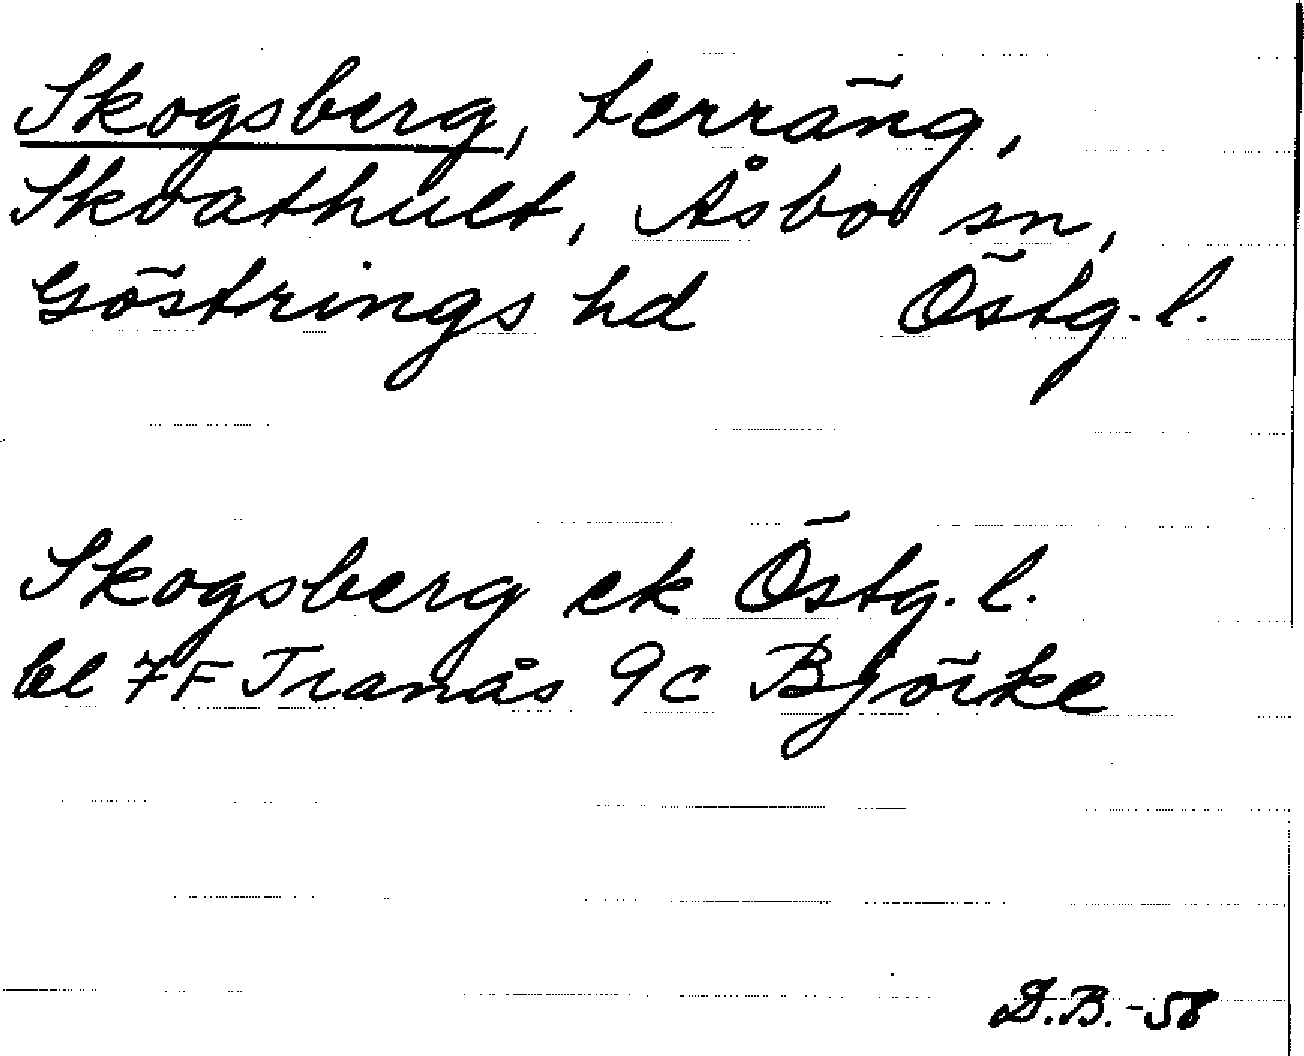 Skogsberg, terräng,
Skvathult, Åsbo sn,
Göstrings hd Östg. l.
Skogsberg ek Östg. l.
bl 7F Tranås 9c Björke
D.B. -58